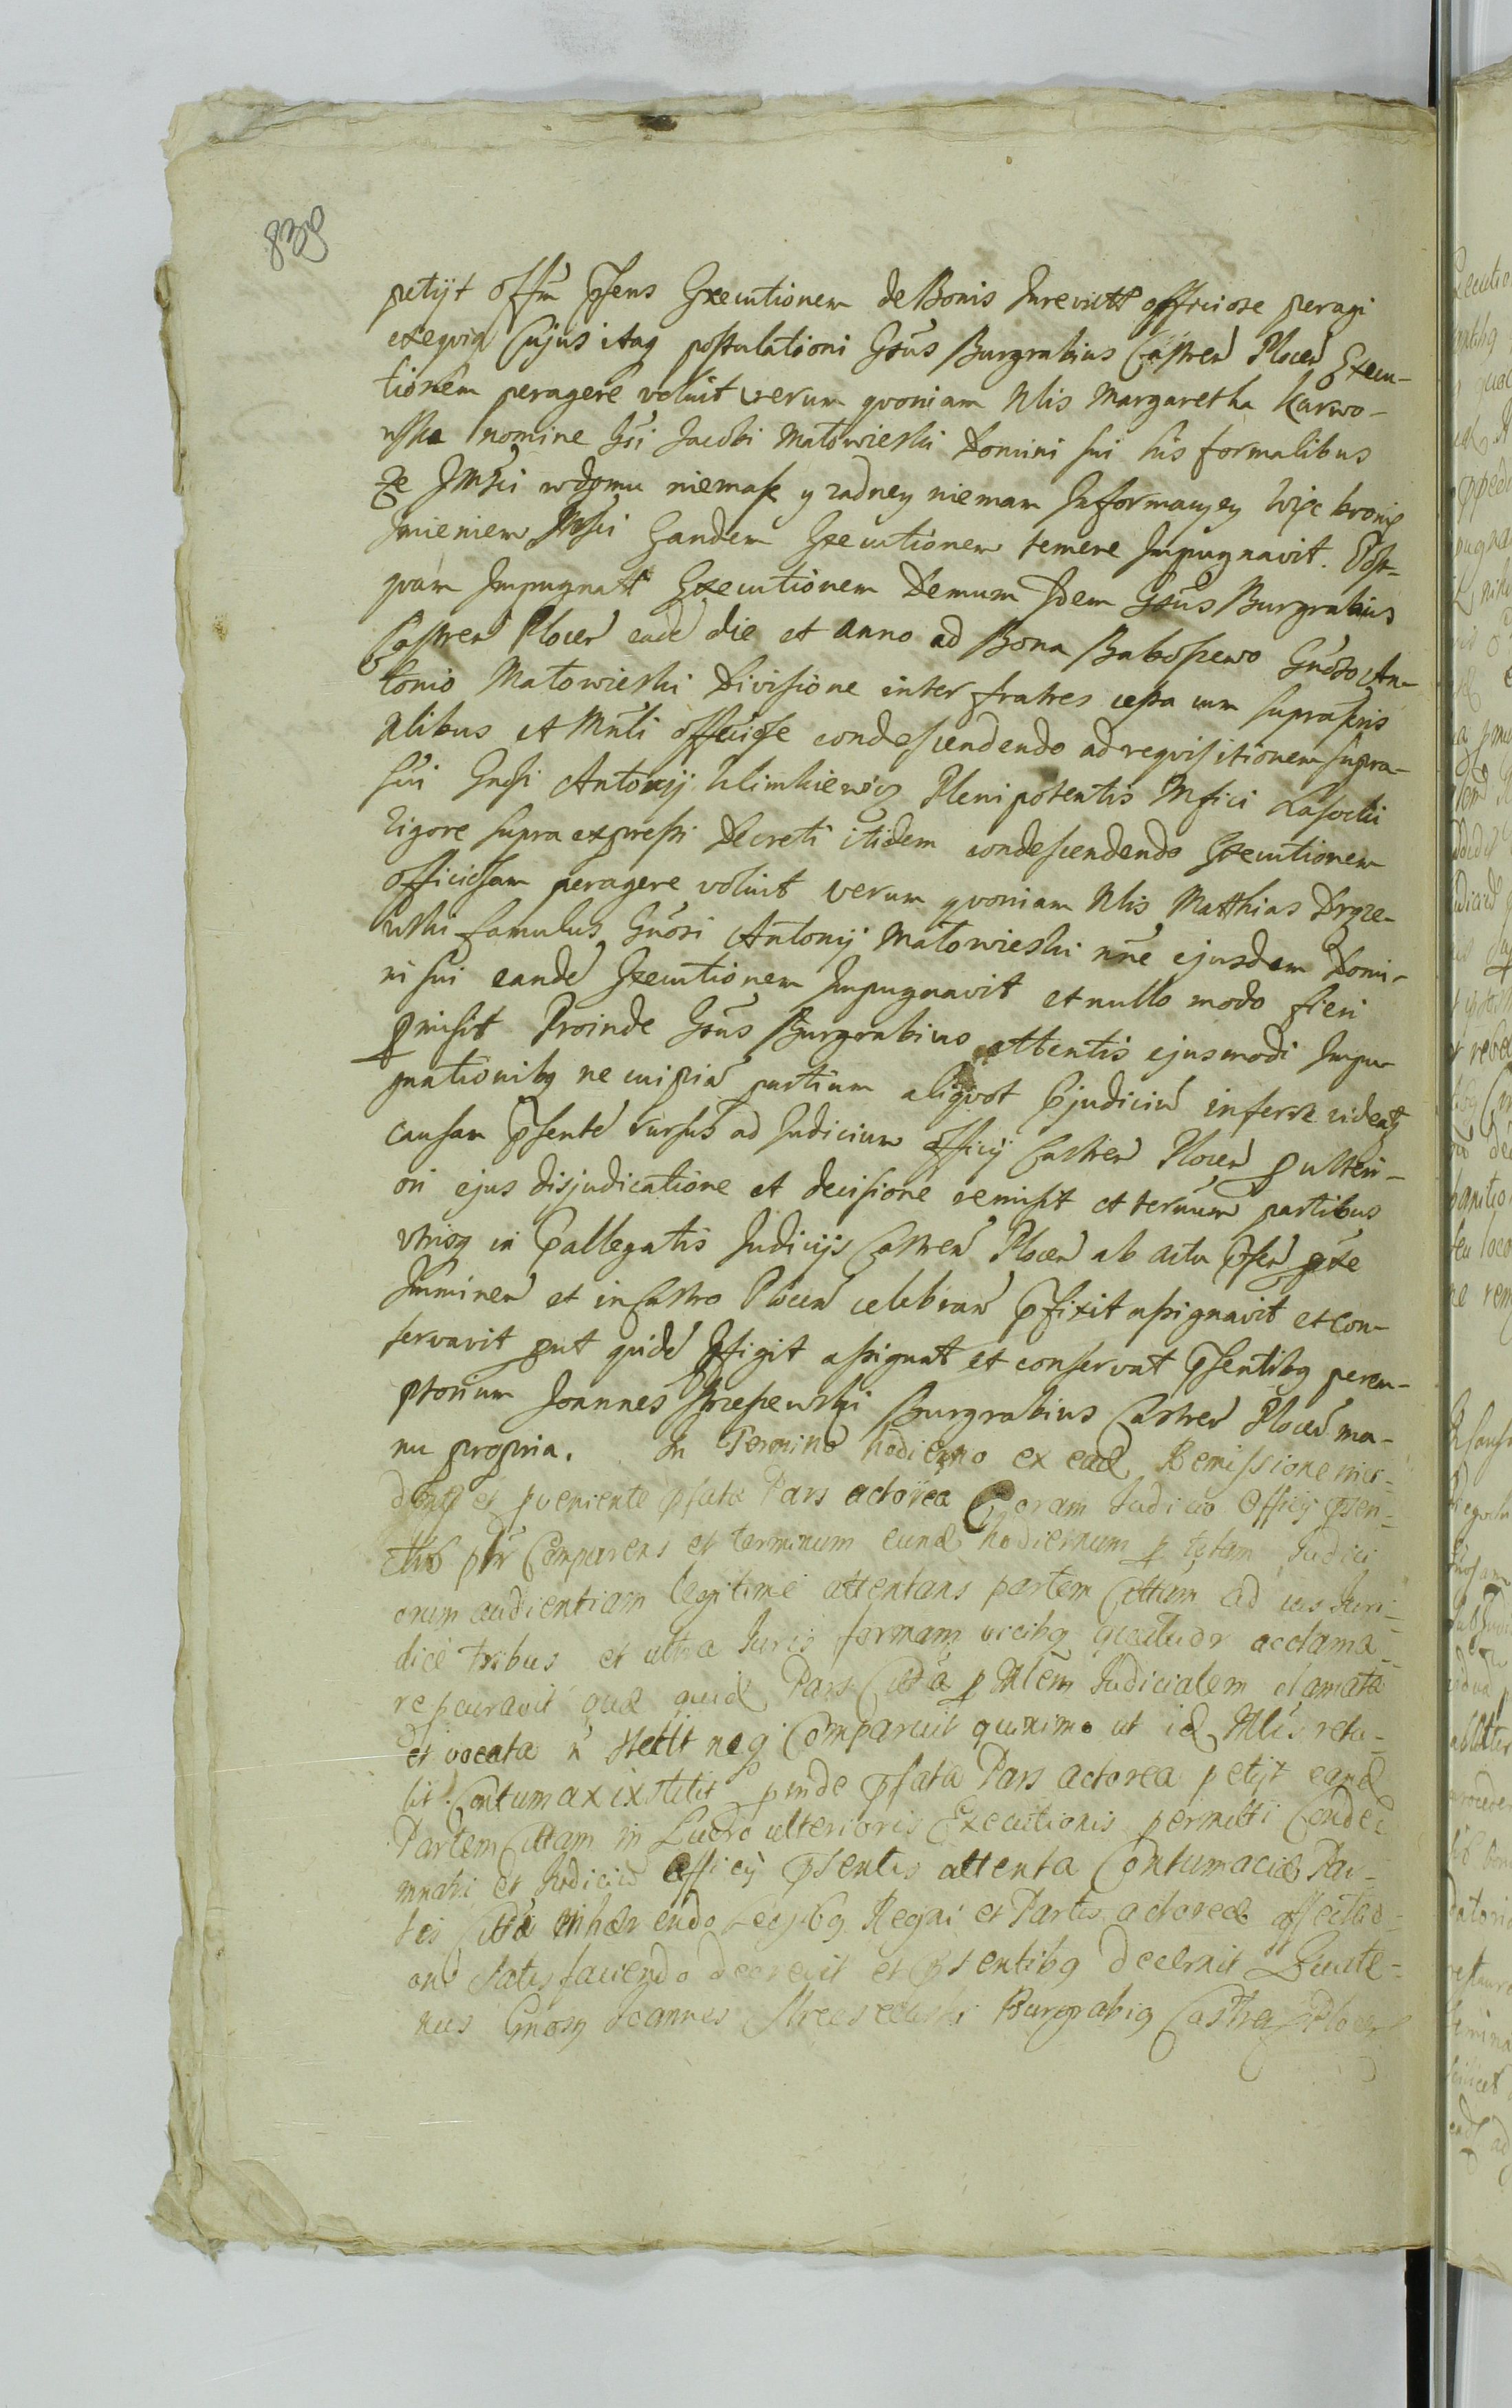 839
petijt offm psens Executionem de Bonis Jurevictt officiose peragi
exequiq Cujus itaq postulationi Gsus Burgrabius Castren Plocen Execu-
tionem peragere voluit verum qvoniam Nlis Margaretha Karwo-
wska nomine Gsi Jacobi Małowieski Domini sui his formalibus
Ze JMsci w domu niemasz y zadney niemam Informacyey więc bronię
Jmieniem JMsci Eandem Executionem temere Impugnavit. Post-
qvam Impugnatt Executionem Demum Idem Gsus Burgrabius
Castren Plocen eade die et anno ad Bona Baboszewo Gnoso An-
tonio Małowieski Divisione inter fratres cessa cum suprascris
Nlibus et Mnli officiose condescendendo ad reqvisitionem supra-
scri Gnosi Antonij Klimkiewicz Plenipotentis Mfici Lasocki
Vigore supra expressi Decreti itidem condescendendo Executionem
officiosam peragere voluit verum qvoniam Nlis Matthias Drze-
wski famulus Gnosi Antonij Małowieski nne ejusdem Domi-
ni sui eande Executionem Impugnavit et nullo modo fieri
pmisit Proinde Gsus Burgrabius attentis ejusmodi Impu-
gnationibq ne cuipia partium aliqvot pjudiciu inferre videatq
causam psente rursus ad Judicium officij Castren Plocen p ulteri-
ori ejus disjudicatione et decisione remisit et termum partibus
utrisq in pallegatis Judicijs Castren Plocen ab actu psen pxe
Imminen et in Castro Plocen celebran pfixit assignavit et con-
servavit put quide pfigit assignat et conservat psentibq perem-
ptorium Joannes Strzeszewski Burgrabius Castren Plocen ma-
nu propria. In Termino hodierno ex ead Remissione inci-
dente et pveniente psata Pars actorea Coram Judicio Officij psen-
tibs plr Comparens et terminum eund hodiernum p totam Judici
orum audientiam legitime attentans partem Cittam ad ius Juri-
dice tribus et ultra Juris formam vicibq acclama-
re pcuravit qua quid Pars Citta p Mlem Judicialem clamata
et vocata n stetit neq Comparuit quinimo ut id Mlis retu-
lit Contumax ixstitit pinde psata Pars actorea petijt eand
Partem Cittam in Lucro ulterioris Executionis permitti Conde-
mnari et Judiciu Officij psentis attenta Contumacia Par-
tis Citta inhaerendo Legibq Regni et Partis actorea affectati-
oni satisfaciendo decrevit et psentibq decernit Quate-
nus Gnosq Joannes Strzeszewski Burgrabiq Castren Plocen